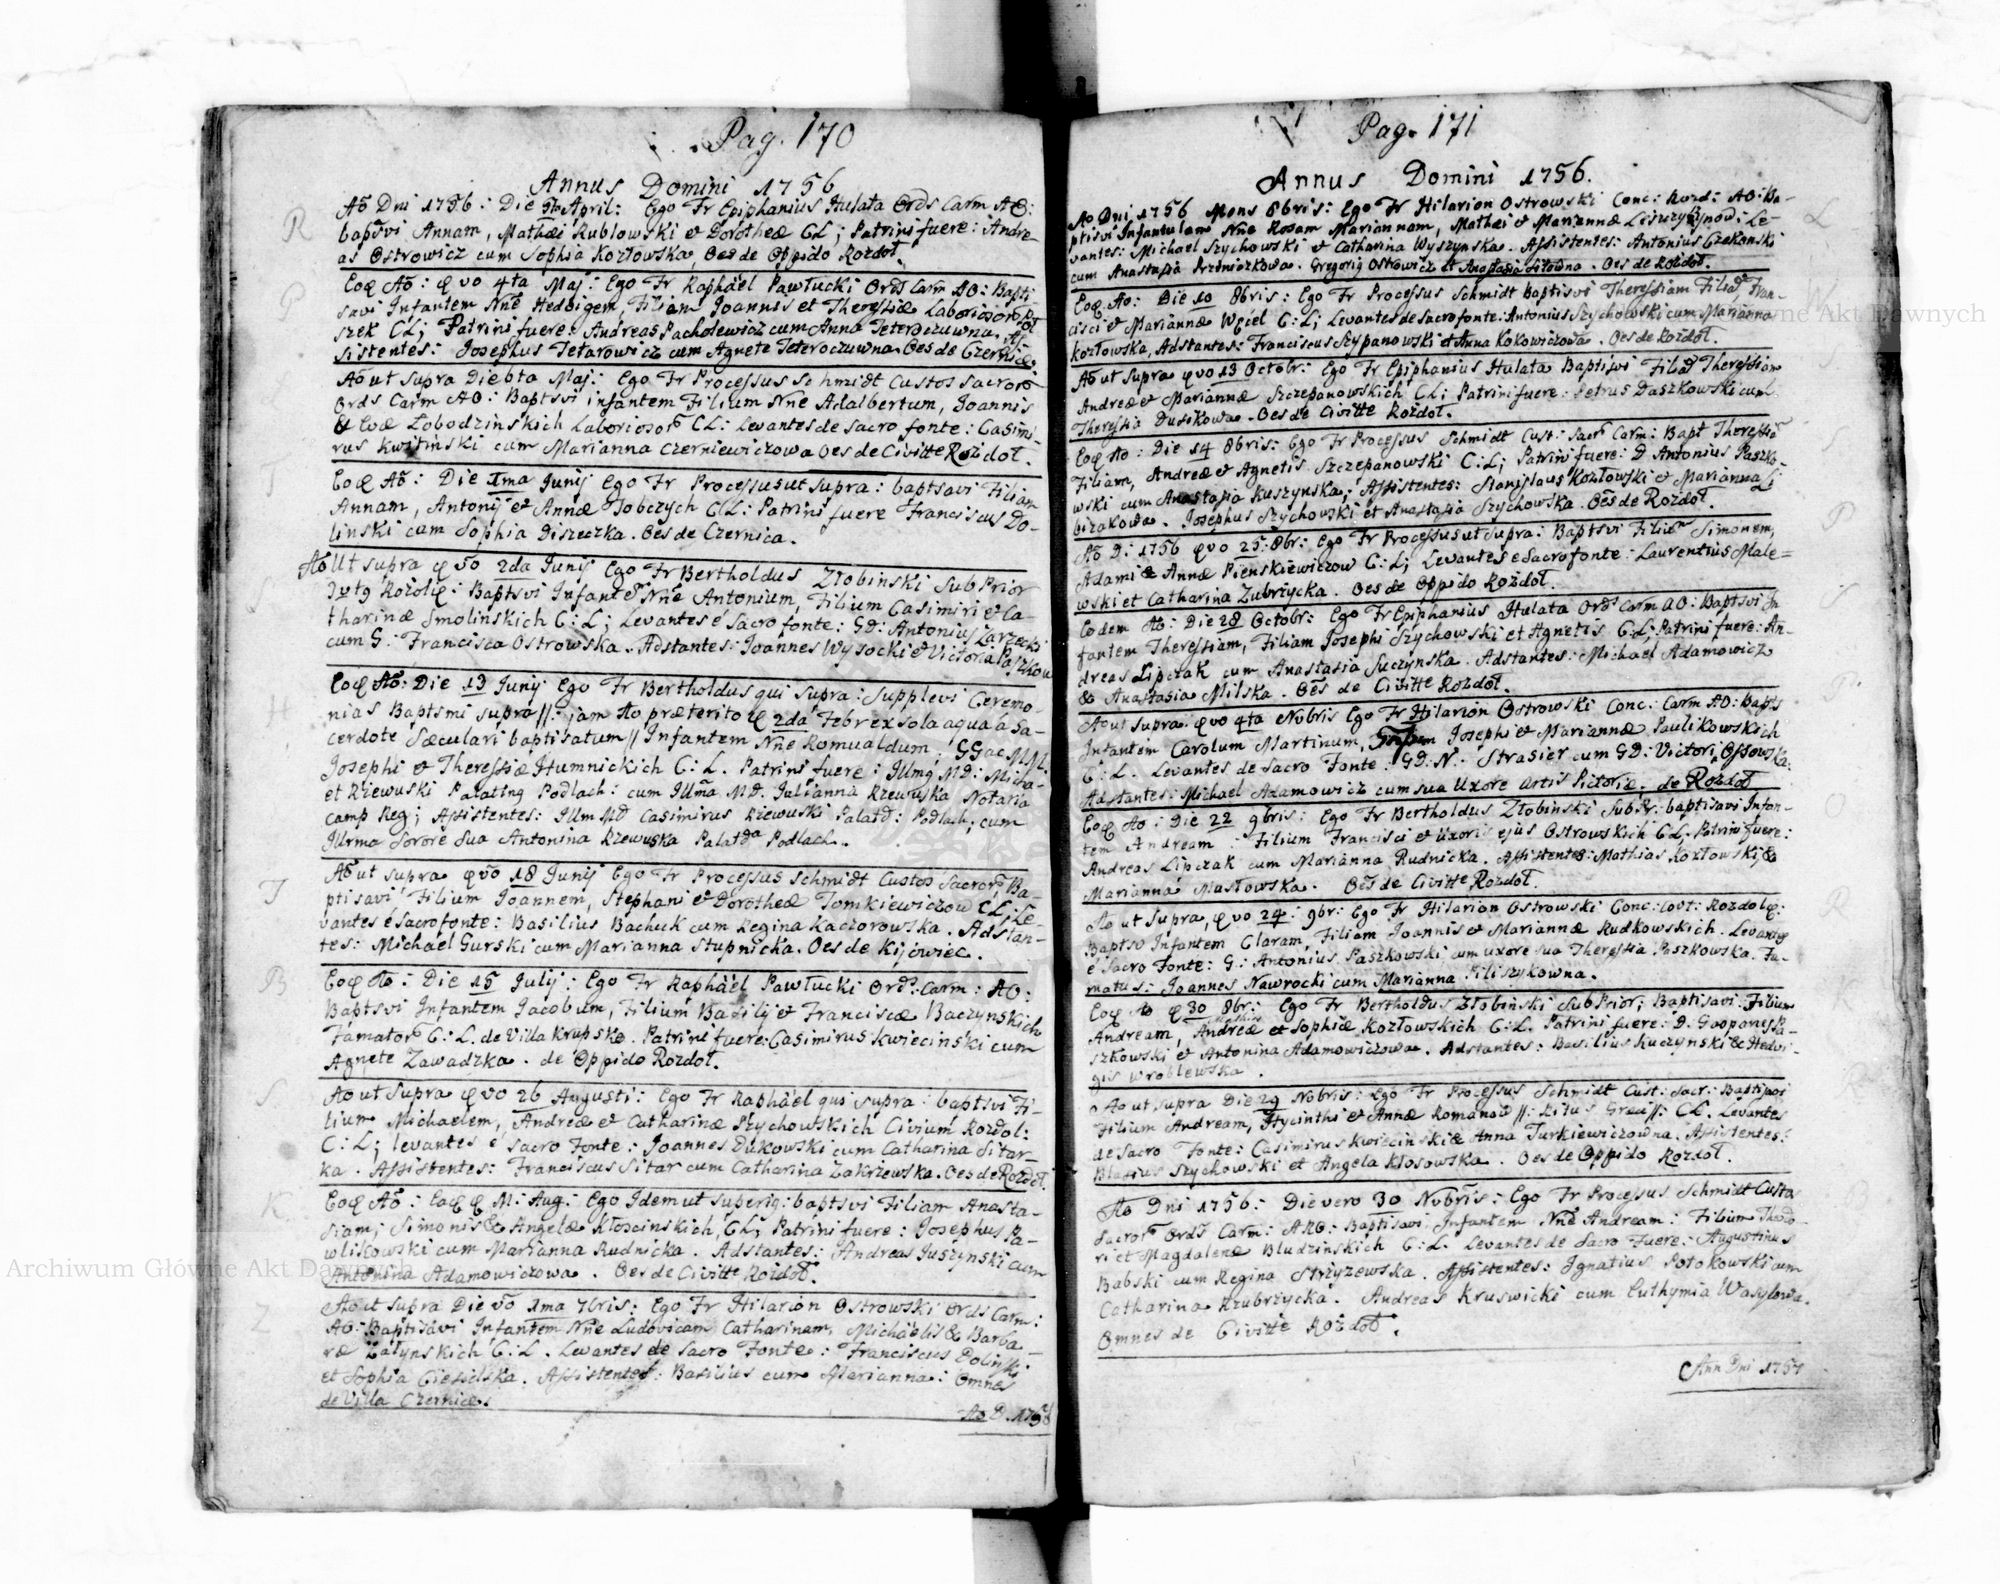 Pag. 170
Annus Domini 1756
R
Ao Dni 1756: Die April: Ego Fr Epiphanius Hulata Ords Carm AO:
baptsvi Annam, Mathæi Rublowski et Dorotheæ CL; Patrini fuere: Andre-
as Ostrowicz cum Sophia Kozłowska, Oes de Oppido Rozdoł.
P
Eoq Ao: q vo 4ta Maj: Ego Fr Raphäel Pawłucki Ords Carm AO: Bapti-
savi Infantem Nne Hedvigem, Filiam Joannis et Theressiæ Laboriosor
szek CL; Patrini fuere: Andreas Pacholewicz cum Anna Teteroczuwna. As
sistentes: Josephus Tetarowicz cum Agnete Teteroczuwna. Oes de Czernicæ
Ao ut supra Die 6ta Maj: Ego Fr Processus Schmidt Custos Sacror
Ords Carm AO: Baptsvi infantem Filium Nne Adalbertum, Joannis
& Evæ Łobodzinskich Laboriosor CL: Levantes de sacro fonte: Casimi-
rus Kwiśinski cum Marianna Czerniewiczowa Oes de Civitte Rozdoł.
Eoq Ao: Die Ima Junij Ego Fr Processus ut supra: baptsavi Filiam
Annam, Antonij et Annæ Tobczych CL: Patrini fuere Franciscus Do-
linski cum Sophia Diszeczka. Oes de Czernica.
Ao Ut supra q vo 2da Junij Ego Fr Bertholdus Złobinski SubPrior
Rozdolq: Baptsvi Infante Nne Antonium, Filium Casimiri et Ca-
tharinæ Smolinskich C: L; Levantes e sacro fonte: GD: Antonius Zarzecki
cum G: Francisca Ostrowska. Adstantes: Joannes Wysocki et Victoria Paszkow
H
Eoq Ao: Die 13 Junij Ego Fr Bertholdus qui supra: Supplevi Ceremo-
nias Baptsmi supra //: jam Ao præterito q 2da Febr ex sola aqua a Sa-
cerdote Sæculari baptisatum // Infantem Nne Romualdum, GG ac MM.
Josephi et Theressiæ Humnickich C: L. Patrini fuere: Illmg MD: Micha-
et Rzewuski Palatng Podlach: cum Illma MD. Julianna Rzewuska Notaria
camp Reg; Assistentes: Illm MD Casimirus Rzewuski Palatd: Podlach: cum
Illrma Sorore sua Antonina Rzewuska Palatda Podlach.
J
Ao ut supra q vo 18 Junij Ego Fr Processus Schmidt Custos Sacror Ba-
ptisavi Filium Joannem, Stephani et Dorotheæ Tomkiewiczow CL; Le-
vantes e sacro fonte: Basilius Bachuk cum Regina Kaczorowska. Adstan-
tes: Michael Gurski cum Marianna Stupnicka. Oes de Kijowiec.
B
Eoq Ao: Die 15 Julij: Ego Fr Raphäel Pawłucki Ord: Carm: AO:
Baptsvi Infantem Jacobum, Filium Basilij et Franciscæ Baczynskich
Famator C: L. de Villa Krupsko. Patrini fuere: Casimirus Kwiecinski cum
Agnete Zawadzka. de Oppido Rozdoł.
S
Ao ut supra q vo 26 Augusti: Ego Fr Raphäel qui supra: baptsvi Fi-
lium Michaelem, Andreæ et Catharinæ Szychowskich Civium Rozdol:
C: L; levantes e sacro Fonte: Joannes Dukowski cum Catharina Sitar-
ka. Assistentes: Franciscus Sitar cum Catharina Zakrzewska. Oes de Rozdoł
K
Eoq Ao: Eaq q M: Aug: Ego Idem ut superig: baptsvi Filiam Anasta-
siam; Simonis & Angelæ Kłoscinskich, CL; Patrini fuere: Josephus Pa-
wlikowski cum Marianna Rudnicka. Adstantes: Andreas Juszynski cum
Antonina Adamowiczowa. Oes de Civitte Rozdoł.
Z
Ao ut supra Die vo 1ma 7bris: Ego Fr Hilarion Ostrowski Ords Carm:
AO: Baptisavi Infantem Nne Ludovicam Catharinam, Michaelis & Barba-
ræ Załynskich C: L. Levantes de sacro Fonte: Franciscus Dolinski
et Sophia Ciesielska. Assistentes: Basilius cum Marianna: Omnes
de Villa Czernice.
Ao D. 1756
Pag. 171
Annus Domini 1756.
Ao Dni 1756 Mens 8bris: Ego Fr Hilarion Ostrowski Conc: Rozd: AO: Ba-
ptisvi Infantulam Nne Rosam Mariannam, Mathei et Mariannæ Le-
vantes: Michael Szychowski et Catharina Wyszynska. Assistentes: Antonius Czekanski
cum Anastasia Przeniczkowa. Gregorig Ostrowicz et Anastasia Sitowna. Oes de Rozdoł.
Eoq Ao: Die 10 8bris: Ego Fr Processus Schmidt Baptisvi Theressiam Filia, Fran-
cisci et Mariannæ Węcel C: L; Levantes de Sacro fonte: Antonius Szychowski cum Marianna
Kozłowska, Adstantes: Franciscus Szypanowski et Anna Kokowiczowa. Oes de Rozdoł.
Ao ut Supra q vo 13 Octobr: Ego Fr Epiphanius Hulata Baptisvi Filia Theressiam
Andreæ et Mariannæ Szczepanowskich CL; Patrini fuere: Petrus Daszkowski cum
Theressia Dusikowa. Oes de Civitte Rozdoł.
Eoq Ao: Die 14 8bris: Ego Fr Processus Schmidt Cust: Sacr Carm: Bapt Theressia
Filiam, Andreæ et Agnetis Szczepanowski C: L; Patrini fuere: D Antonius Paszko-
wski cum Anastasia Kuszynska; Assistentes: Stanislaus Kozłowski et Marianna
Josephus Szychowski et Anastasia Szychowska. Oes de Rozdoł.
P
Ao D: 1756 q vo 25: 8br: Ego Fr Processus ut supra: Baptsvi Filiu Simonem,
Adami & Annæ Pienskiewiczow C: L; Levantes e Sacro fonte: Laurentius Male=
wski et Catharina Zubrzycka. Oes de Oppido Rozdoł.
S
Eodem Ao: Die 28 Octobr: Ego Fr Epiphanius Hulata Ords Carm AO: Baptsvi In
fantem Theressiam, Filiam Josephi Szychowski et Agnetis C: L; Patrini fuere: An-
dreas Lipczak cum Anastasia Suczynska. Adstantes: Michael Adamowicz
& Anastasia Milska. Oes de Civitte Rozdoł.
P.
Ao ut supra: q vo 4ta Nvbris Ego Fr Hilarion Ostrowski Conc: Carm AO: Bapts
Infantem Carolum Martinum, Josephi et Mariannæ Paulikowskich
C: L. Levantes de Sacro Fonte: GD: N. Strasier cum GD: Victori Ossowska:
Adstantes: Michael Adamowicz cum sua Uxore Artis Pictoriæ. de Rozdoł
O
Eoq Ao: Die 22 9bris: Ego Fr Bertholdus Złobinski SubPr: baptisavi Infan-
tem Andream: Filium Francisci et Uxoris ejus Ostrowskich CL. Patrini fuere:
Andreas Lipczak cum Marianna Rudnicka. Assistentes: Mathias Kozłowski &
Marianna Masłowska. Oes de Civitte Rozdoł.
R
Ao ut Supra, q vo 24: 9br: Ego Fr Hilarion Ostrowski Conc: Covt: Rozdolq:
Baptsv Infantem Claram, Filiam Joannis et Mariannæ Rudkowskich. Levantes
e Sacro Fonte: G: Antonius Paszkowski cum uxore sua Theressia Paszkowska. Fa-
matus: Joannes Nawrocki cum Marianna Filiszykowna.
K
Eoq Ao q 30 8br: Ego Fr Bertholdus Złobinski SubPrior; Baptisavi Filium
Andream, Andreæ et Sophiæ Kozłowskich C: L. Patrini fuere: D. Pa-
szkowski et Antonina Adamowiczowa. Adstantes: Basilius Kuczynski & Hedvi-
gis Wroblewska.
Ao ut supra Die 29 Nvbris: Ego Fr Processus Schmidt Cust: Sacr: Baptisavi
Filium Andream, Hycinthi et Annæ Romanow //: Ritus Græci //: CL. Levantes
de Sacro Fonte: Casimirus Kwiecinski & Anna Turkiewiczowna. Assistentes:
Blasius Szychowski et Angela Kłosowska. Oes de Oppido Rozdoł.
Ao Dni 1756: Die vero 30 Nvbris: Ego Fr Processus Schmidt Custo
Sacror Ords Carm: ARO: Baptisavi Infantem Nne Andream: Filium Theodo-
ri et Magdalenæ Bludzinskich C: L. Levantes de Sacro Fuere: Augustinus
Babski cum Regina Strzyzewska. Assistentes: Ignatius Potokowski cum
Catharina Rzubrzycka. Andreas Kruswicki cum Euthymia Wasylowa.
Omnes de Civitte Rozdoł.
Ann Dni 1757
Archiwum Główne Akt Dawnych